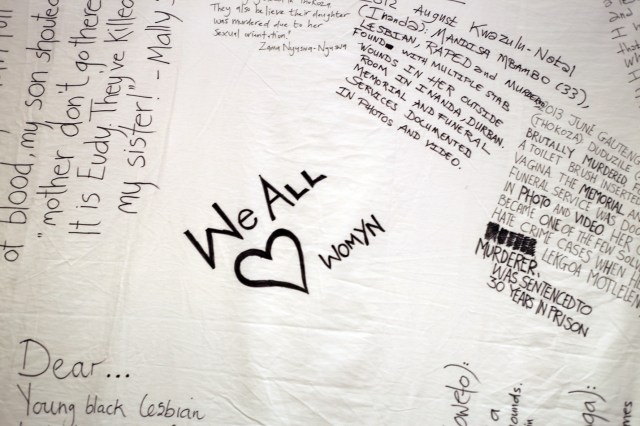 of blood, my son shouted
"mother don't go there
It is Eudy. They've killed
my sister!" - Mally
They also believe their daughter
was murdered due to her
sexual orientation."
Zama Nguswa - Nguswa
August Kwazulu-Natal
(Thanda): MANDISA MBAMBO (33),
LESBIAN, RAPED and MURDERED
FOUND WITH MULTIPLE STAB
WOUNDS IN HER OUTSIDE
ROOM IN INANDA, DURBAN.
MEMORIAL AND FUNERAL
SERVICES DOCUMENTED
IN PHOTOS AND VIDEO.
2013 JUNE GAUTENG
(THOKOZA) DUDUZILE
BRUTALLY MURDERED
A TOILET BRUSH INSERTED
VAGINA. THE MEMORIAL
FUNERAL SERVICE WAS
IN PHOTO AND VIDEO. HER
BECAME ONE OF THE FEW
HATE CRIME CASES WHEN
LEKGOA MOTLELENG
MURDERER,
WAS SENTENCED TO
30 YEARS IN PRISON
We ALL
♡ WOMYN
Dear...
Young black lesbian